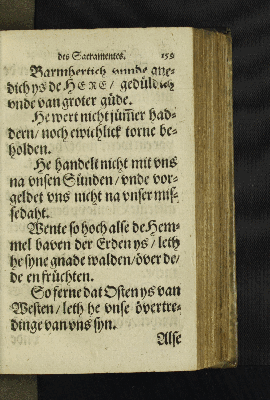 des Sacramentes. 159
Barmhertich vnnde gne-
dich ys de HERE / gedüldich
vnde van groter güde.
He wert nicht jüm̃er had-
dern / noch ewichlick torne be-
holden.
He handelt nicht mit vns
na vnsen Sünden / vnde vor-
geldet vns nicht na vnser mis-
sedaht.
Wente so hoch alse de Hem-
mel baven der Erden ys / leth
he syne gnade walden / över de /
de en früchten.
So ferne dat Osten ys van
Westen / leth he vnse övertre-
dinge van vns syn.
Alse